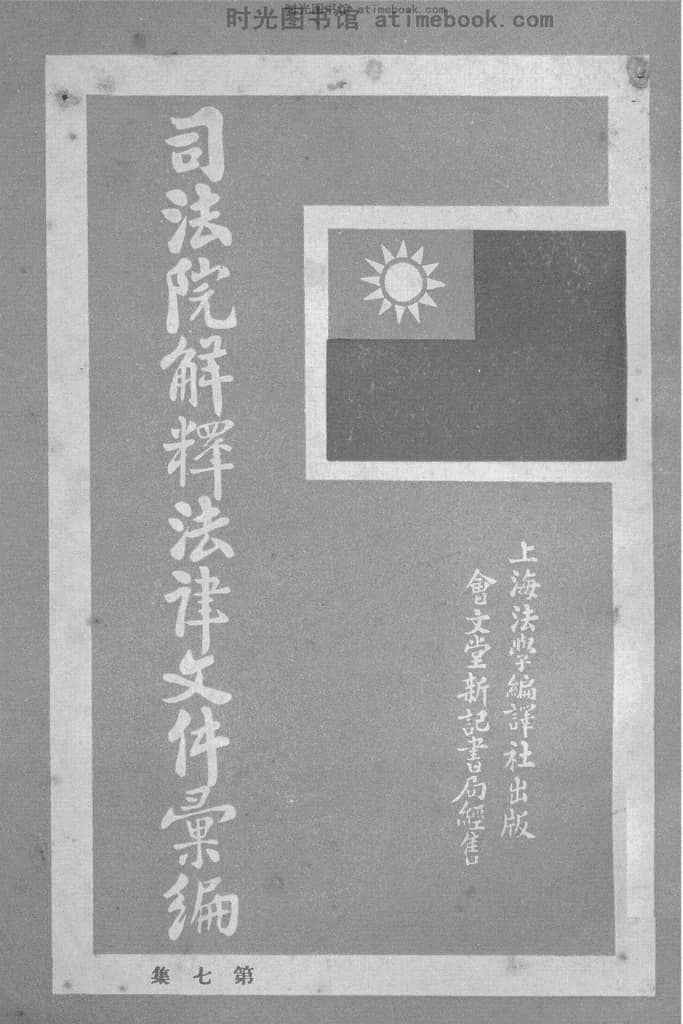 时光图书馆 atimebook.com
时光图书馆 atimebook.com
司法院解釋法律文件彙編
上海法學編譯社出版
會文堂新記書局經售
第七集